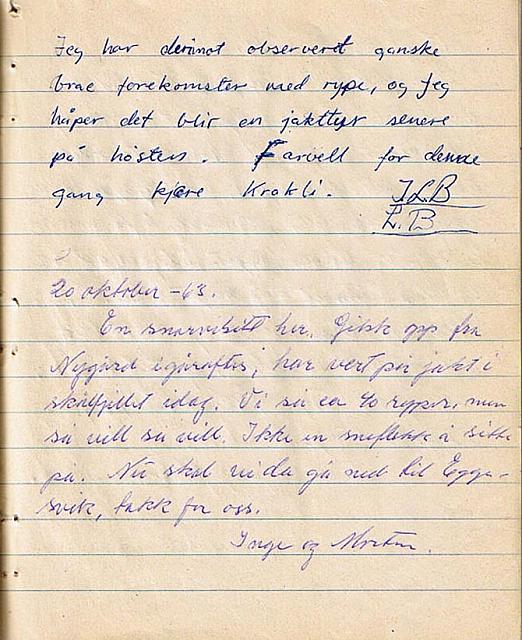 Jeg har derimot observert ganske
brae forekomster med rype, og jeg
håper det blir en jakttur senere
på høsten. Farvell for denne
gang kjære Krokli. I.L.B
L.B
20 oktober -63.
En snarvisitt her. Gikk opp fra
Nygård igåraftes, har vert på jakt i
skålfjellet idag. Vi så ca 40 ryper, men
så vill så vill. Ikke en sneflekk å sitte
på. Nå skal vi da gå ned til Egge-
svik, takk for oss.
Inge og Morten.